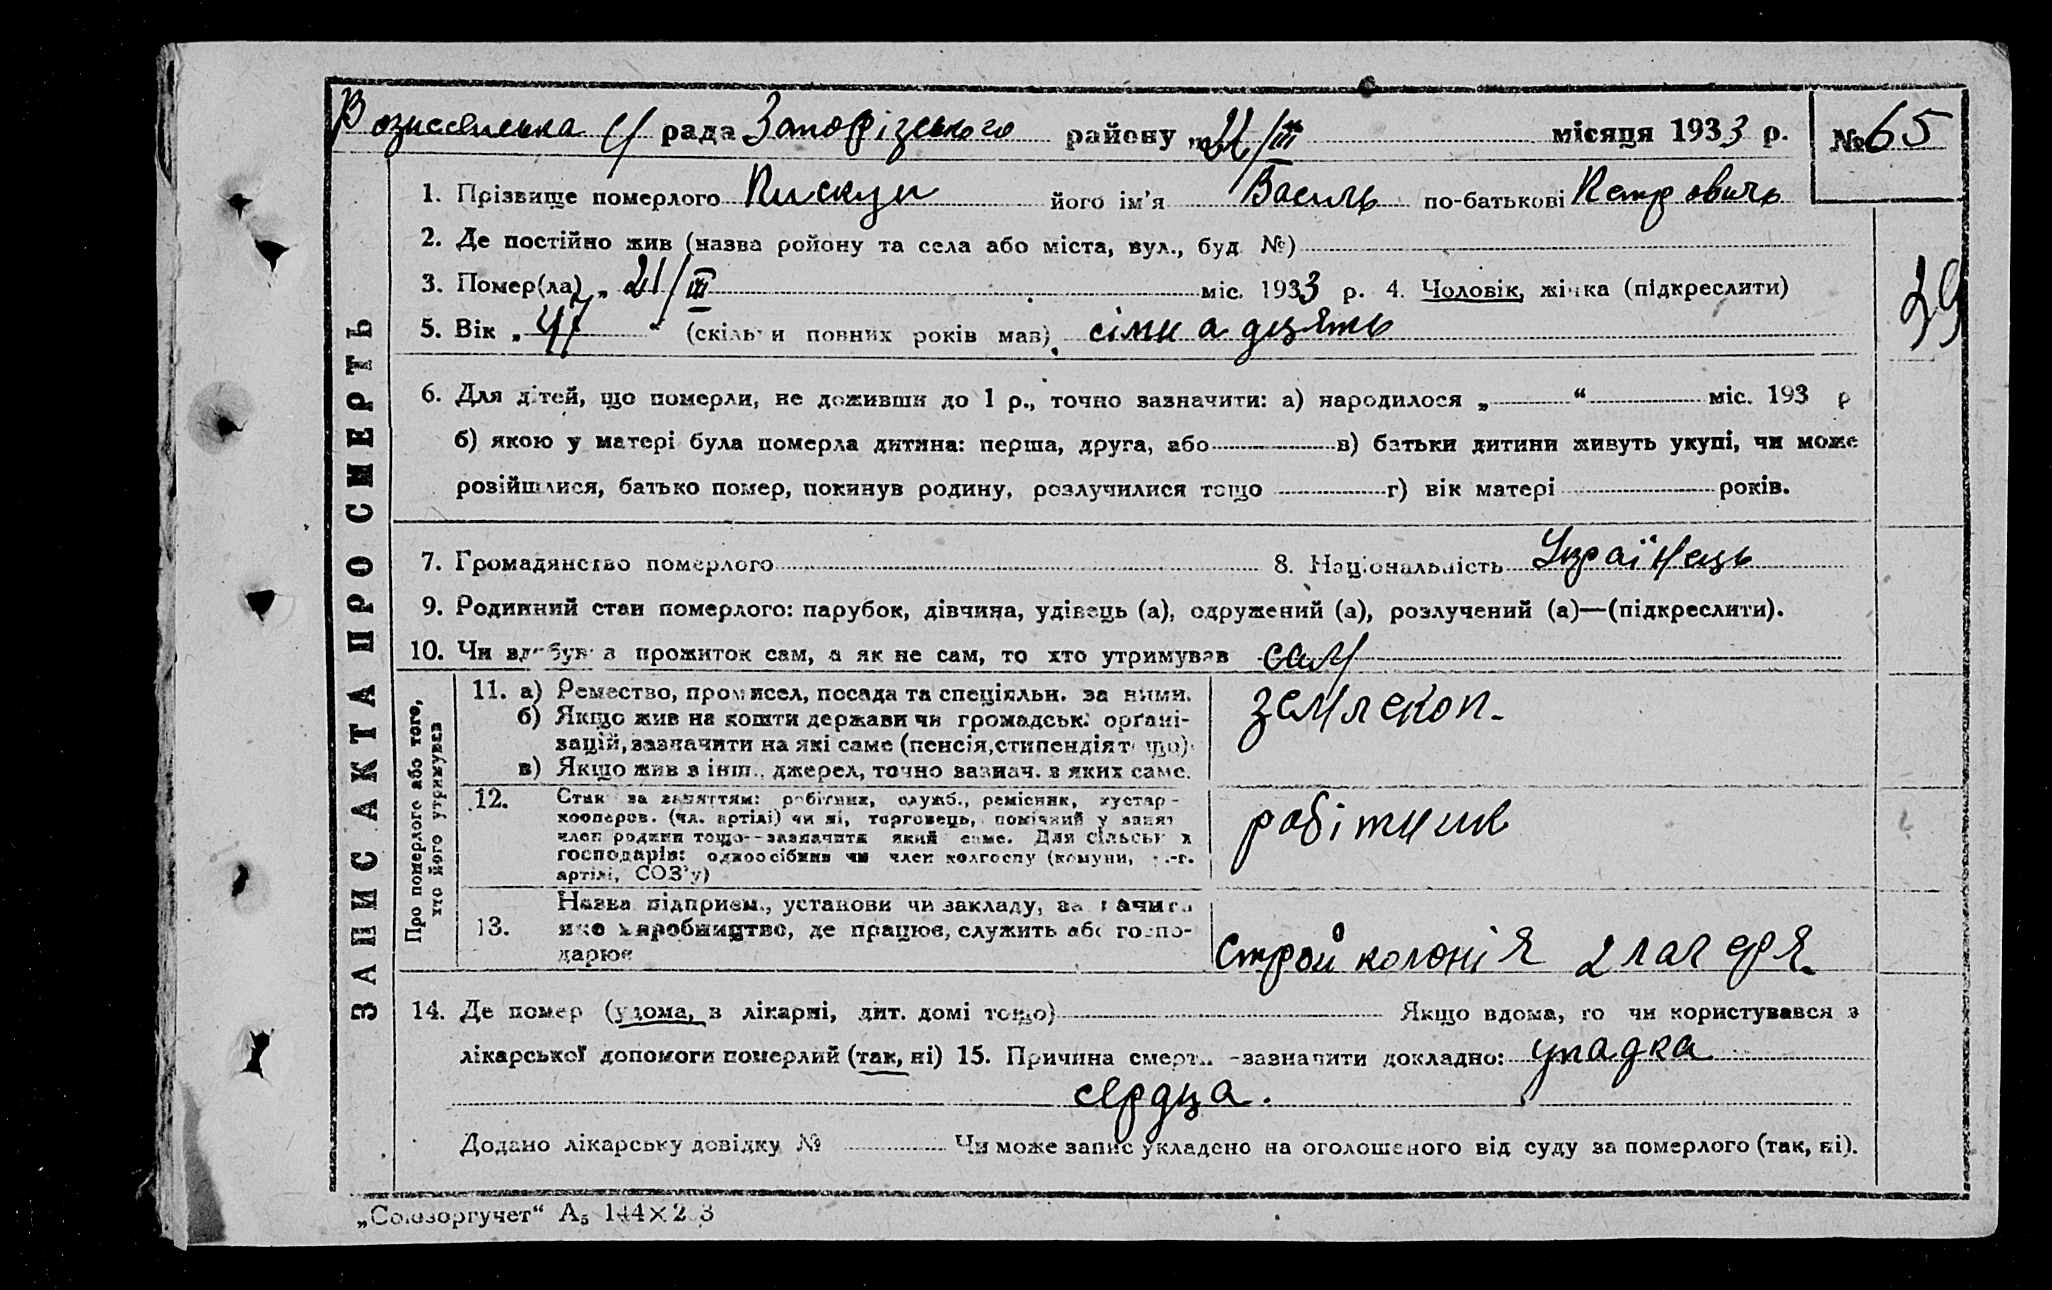 Вознесенська с/рада Запорізського району „22/III місяця 1933 р. № 65
1. Прізвище померлого Пискун його ім'я Василь по-батькові Петрович
2. Де постійно жив (назва ройону та села або міста, вул., буд. №)
3. Помер(ла) „21/III міс. 1933 р. 4. Чоловік, жінка (підкреслити)
39
5. Вік „47“ (скільки повних років мав)
6. Для дітей, що померли, не доживши до 1 р., точно зазначити: а) народилося „ “ міс. 193 р
б) якою у матері була померла дитина: перша, друга, або в) батьки дитини живуть укупі, чи може
розійшлися, батько помер, покинув родину, розлучилися тощо г) вік матері років.
7. Громадянство померлого 8. Національність Українець
9. Родинний стан померлого: парубок, дівчина, удівець (а), одружений (а), розлучений (а)—(підкреслити).
10. Чи здобував прожиток сам, а як не сам, то хто утримував сам
ЗАПИС АКТА ПРО СМЕРТЬ
Про померлого або того,
хто його утримував
11. а) Ремество, промисел, посада та спеціяльн. за ними.
б) Якщо жив на кошти держави чи громадськ. орґані-
зацій, зазначити на які саме (пенсія, стипендія тощо)
в) Якщо жив з інш. джерел, точно зазнач. з яких саме.
землекоп.
12. Стан за заняттям: робітник, служб., ремісник, кустар-
кооперов. (чл. артілі) чи ні, торговець, помічний у занят
член родини тощо—зазначити який саме. Для сільськ х
господарів: одноосібник чи член колгоспу (комуни, с.-г.
артілі, СОЗ'у)
робітник
13. Назва підприєм., установи чи закладу, зазначити
яке виробництво, де працює, служить або госпо-
дарює
Строй колонія 2 лагеря.
14. Де помер (удома, в лікарні, дит. домі тощо) Якщо вдома, то чи користувався з
лікарської допомоги померлий (так, ні) 15. Причина смерти —зазначити докладно: упадка
сердца.
Додано лікарську довідку № Чи може запис укладено на оголошеного від суду за померлого (так, ні).
„Союзоргучет“ А₅ 144×203